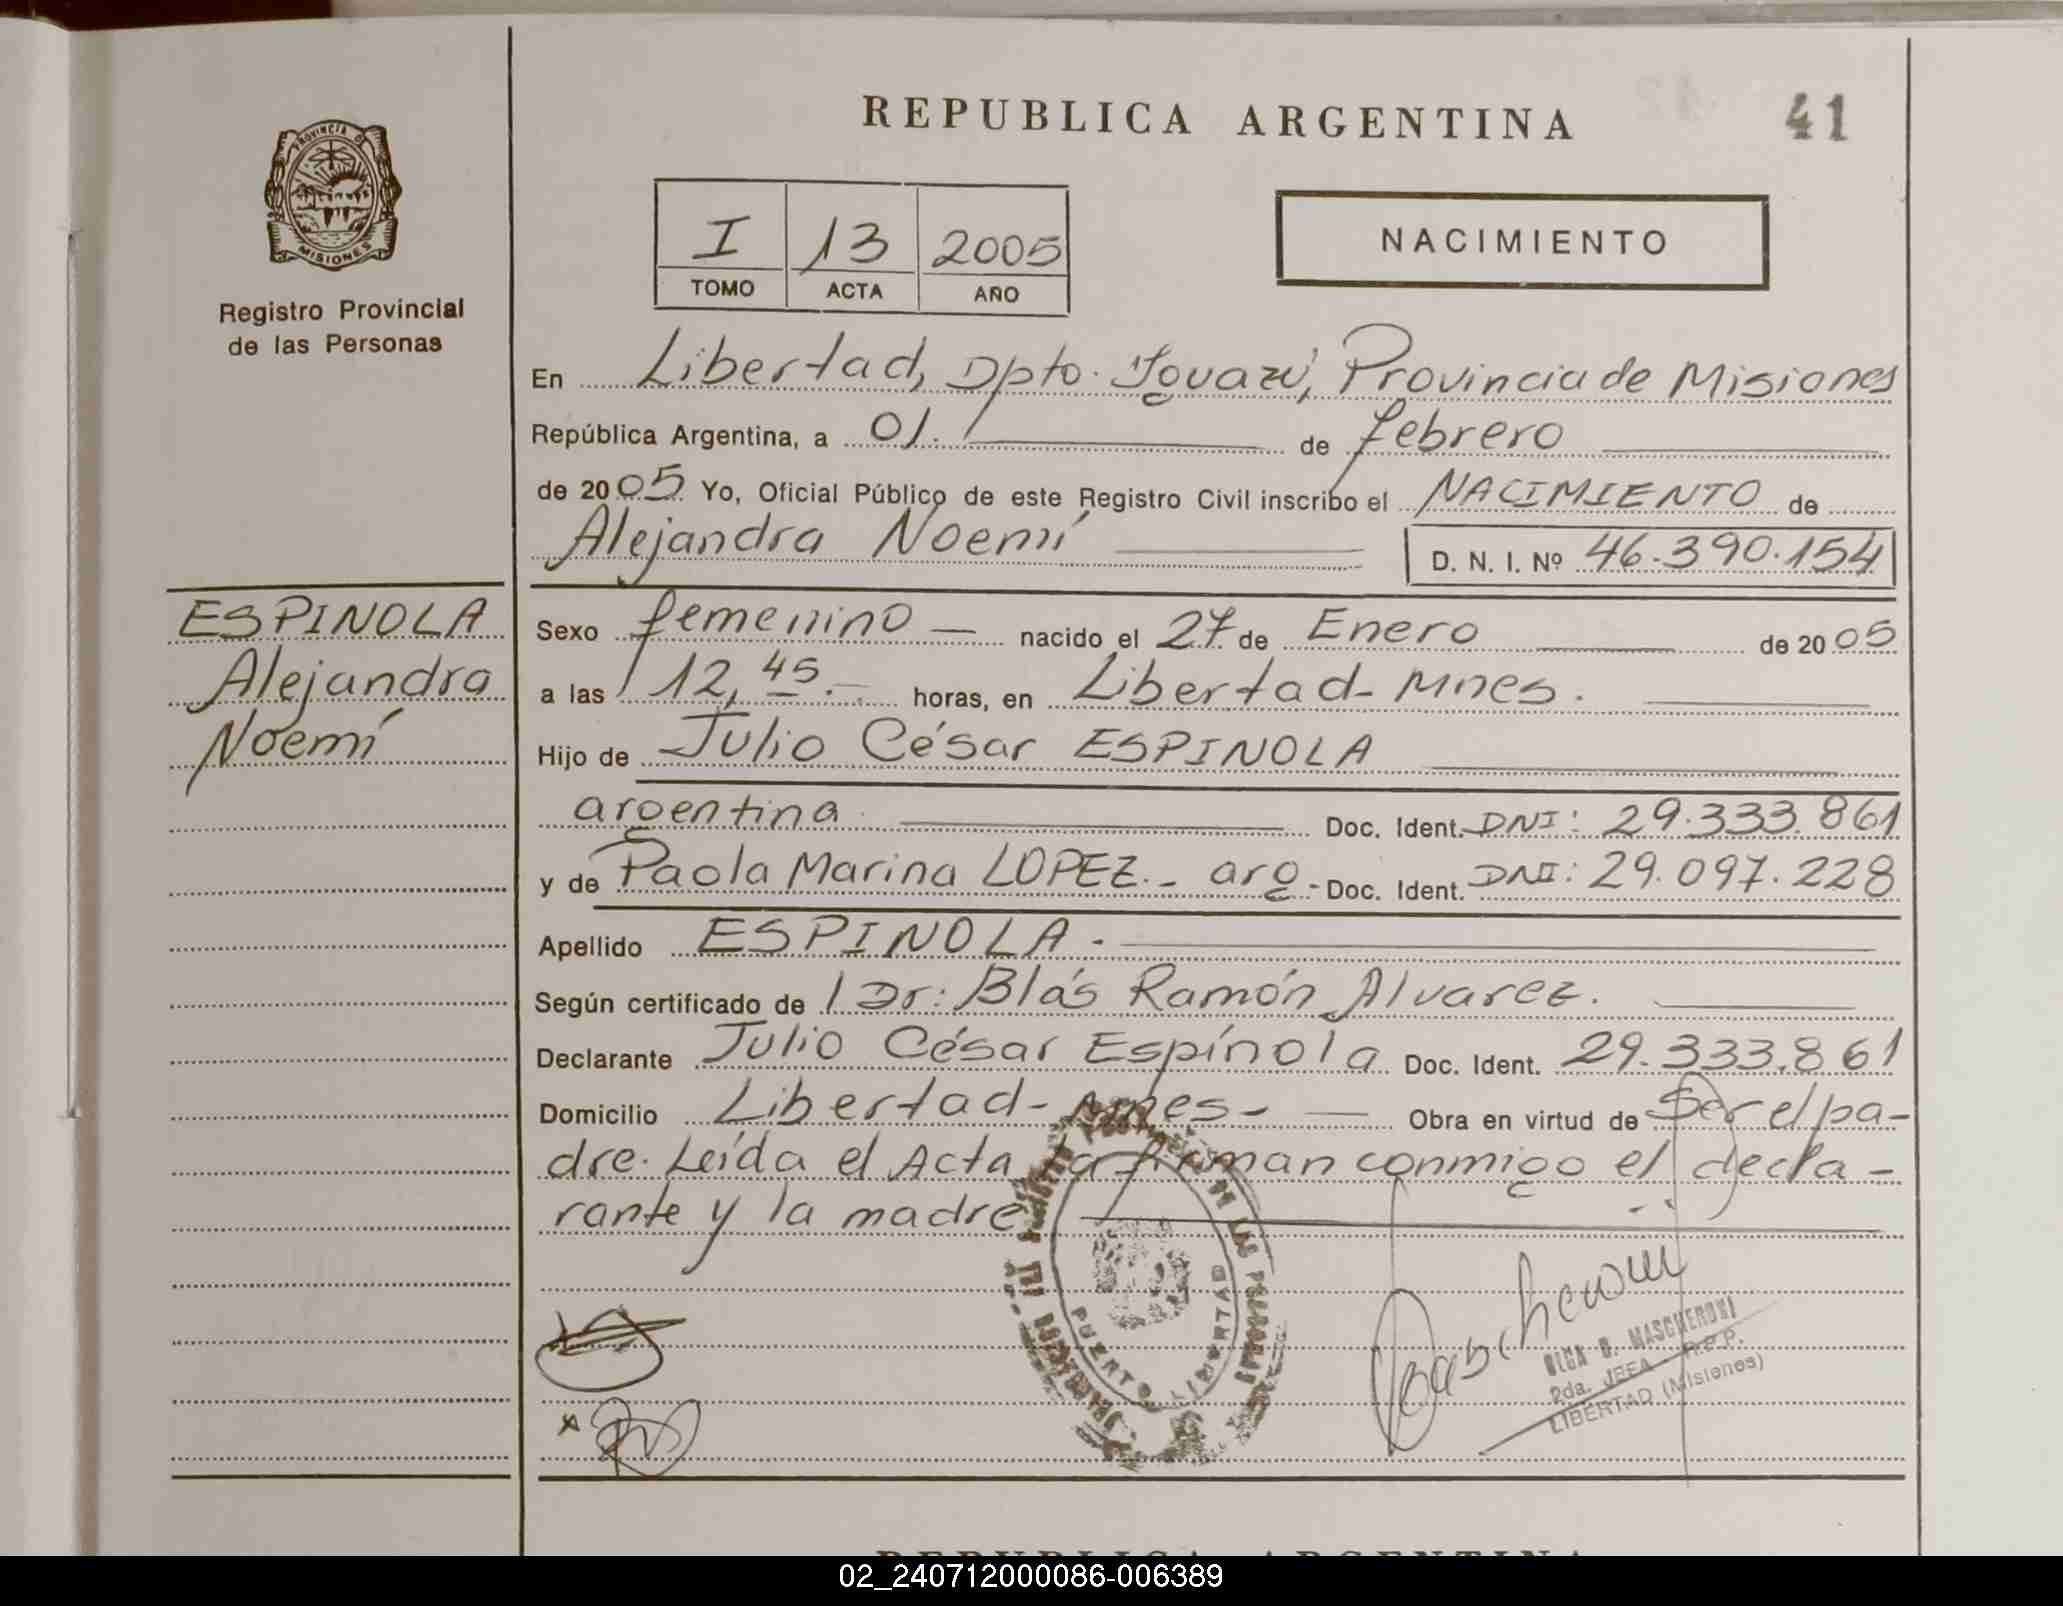 REPUBLICA ARGENTINA
41
PROVINCIA DE
MISIONES
Registro Provincial
de las Personas
I 13 2005
TOMO ACTA AÑO
NACIMIENTO
En Libertad, Dpto. Iguazú, Provincia de Misiones
República Argentina, a 01. de febrero
de 2005 Yo, Oficial Público de este Registro Civil inscribo el NACIMIENTO de
Alejandra Noemí D. N. I. Nº 46.390.154
ESPINOLA
Alejandra
Noemí
Sexo femenino — nacido el 27 de Enero de 2005
a las 12,45.- horas, en Libertad - Mnes.
Hijo de Julio César ESPINOLA
argentina Doc. Ident. DNI: 29.333.861
y de Paola Marina LOPEZ.- arg - Doc. Ident. DNI: 29.097.228
Apellido ESPINOLA.-
Según certificado de Dr: Blás Ramón Alvarez.
Declarante Julio César Espínola Doc. Ident. 29.333.861
Domicilio Libertad - Mnes - Obra en virtud de Ser el pa-
dre. Leída el Acta la firman conmigo el decla-
rante y la madre
PUERTO LIBERTAD
OLGA B. MASCHERONI
2da. JEFA R.P.P.
LIBERTAD (Misiones)
REPUBLICA ARGENTINA
02_240712000086-006389